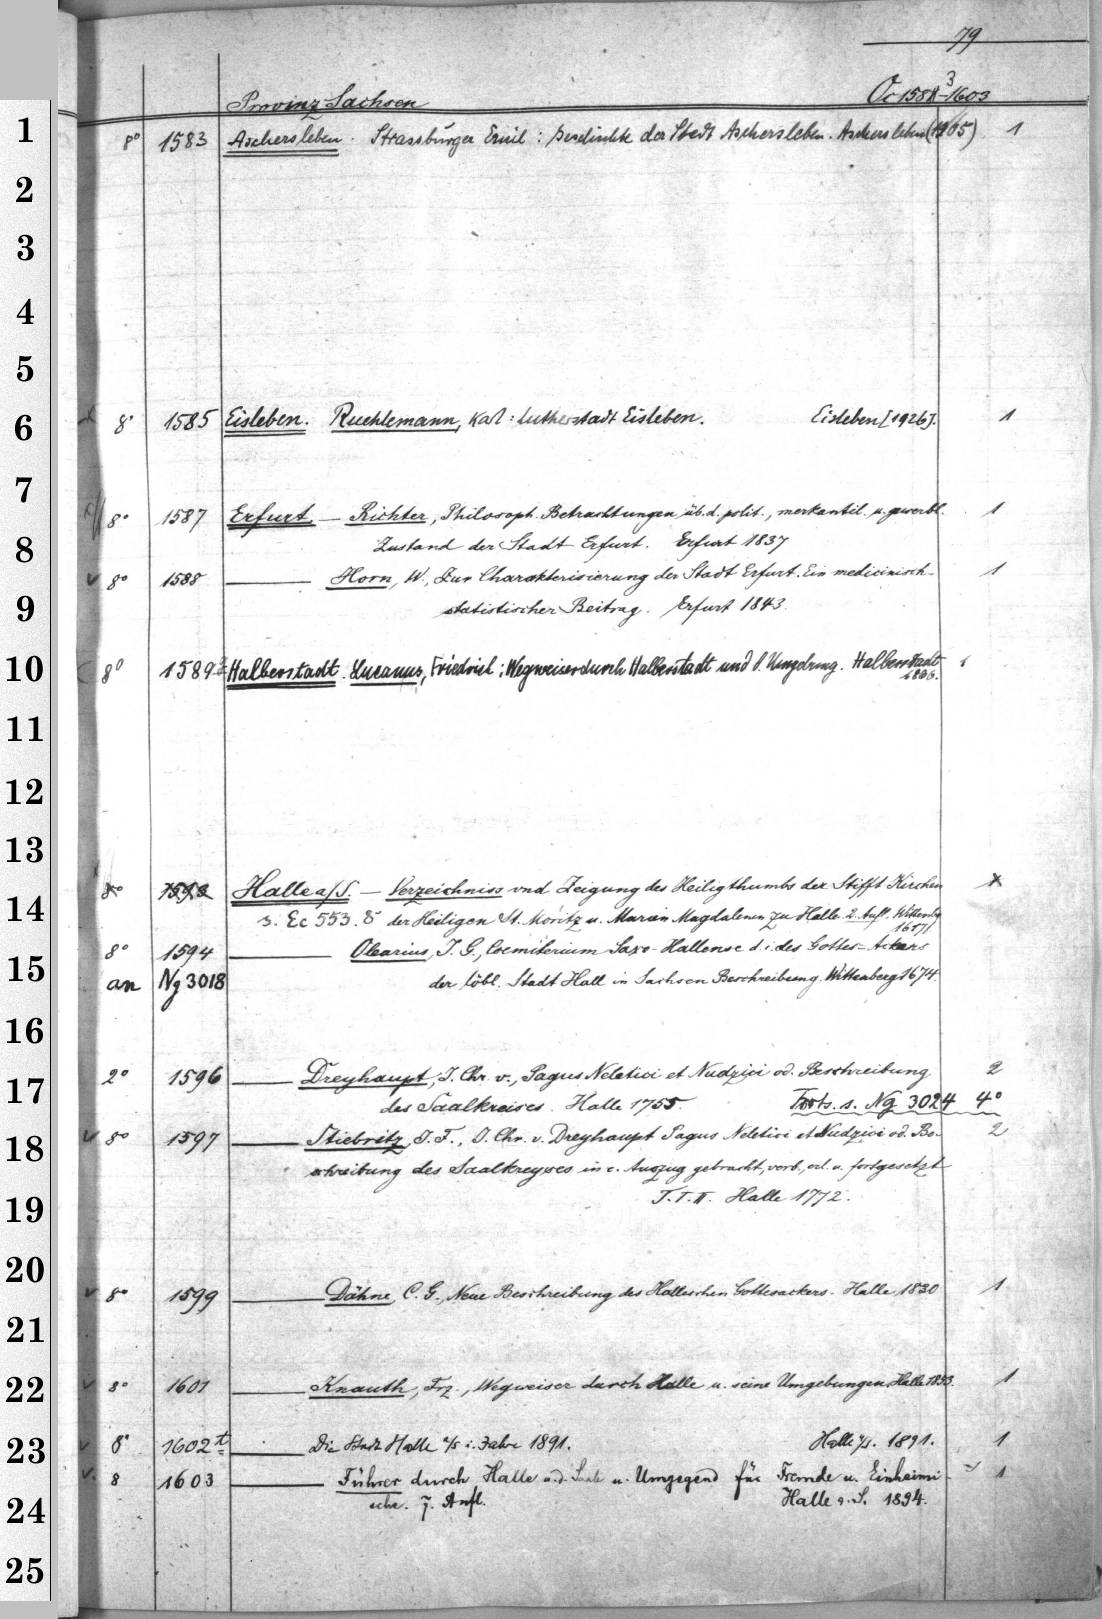 79
Provinz Sachsen Oc 1583-1603
1 8° 1583 Aschersleben. Strassburger Emil: Geschichte der Stadt Aschersleben. Aschersleben (1905) 1
2
3
4
5
6 8° 1585 Eisleben. Ruehlemann, Karl: Lutherstadt Eisleben. Eisleben [1926]. 1
7
8° 1587 Erfurt — Richter, Philosoph. Betrachtungen üb. d. polit., merkantil. u. gewerbl. 1
8 Zustand der Stadt Erfurt. Erfurt 1837
8° 1588 — Horn, W., Zur Charakterisierung der Stadt Erfurt. Ein medicinisch- 1
9 statistischer Beitrag. Erfurt 1843.
10 8° 1589 Halberstadt. Lucanus, Friedrich: Wegweiser durch Halberstadt und s. Umgebung. Halberstadt 1
1866.
11
12
13
14 8° 1593 Halle a/S. — Verzeichniss vnd Zeigung des Heiligthumbs der Stifft Kirchen
s. Ec 553. 8° der Heiligen St. Moritz u. Marien Magdalenen zu Halle. 2. Aufl. Wittenbg
1617
8° 1594 — Olearius, J. G., Coemiterium Saxo-Hallense d. i. des Gottes-Ackers
15 an Ng 3018 der löbl. Stadt Hall in Sachsen Beschreibung. Wittenberg 1674.
16
17 2° 1596 — Dreyhaupt, J. Chr. v., Pagus Neletici et Nudzici od. Beschreibung 2
des Saalkreises. Halle 1755. Forts. s. Ng 3024 4°
18 8° 1597 — Stiebritz, J. F., J. Chr. v. Dreyhaupt Pagus Neletici et Nudzici od. Be- 2
schreibung des Saalkreyses in e. Auszug gebracht, verb., erl. u. fortgesetzt
19 T. I. II. Halle 1772.
20 8° 1599 — Dähne, C. G., Neue Beschreibung des Halleschen Gottesackers. Halle 1830 1
21
22 8° 1601 — Knauth, Frz., Wegweiser durch Halle u. seine Umgebungen. Halle 1853. 1
23 8° 1602 t — Die Stadt Halle a/S i. Jahre 1891. Halle a/S. 1891. 1
8 1603 — Führer durch Halle a. d. Saale u. Umgegend für Fremde u. Einheimi- 1
24 sche. 7. Aufl. Halle a. S. 1894.
25